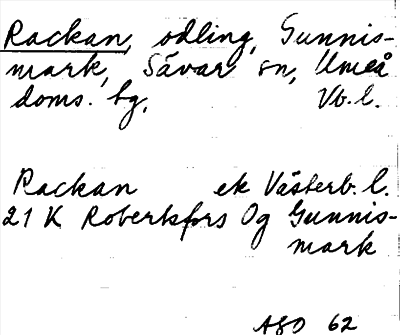 Rackan, odling, Gunnis-
mark, Sävar sn, Umeå
doms. hg, Vb. l.
Rackan ek Västerb. l.
21 K Robertsfors Og Gunnis-
mark
ASO 62